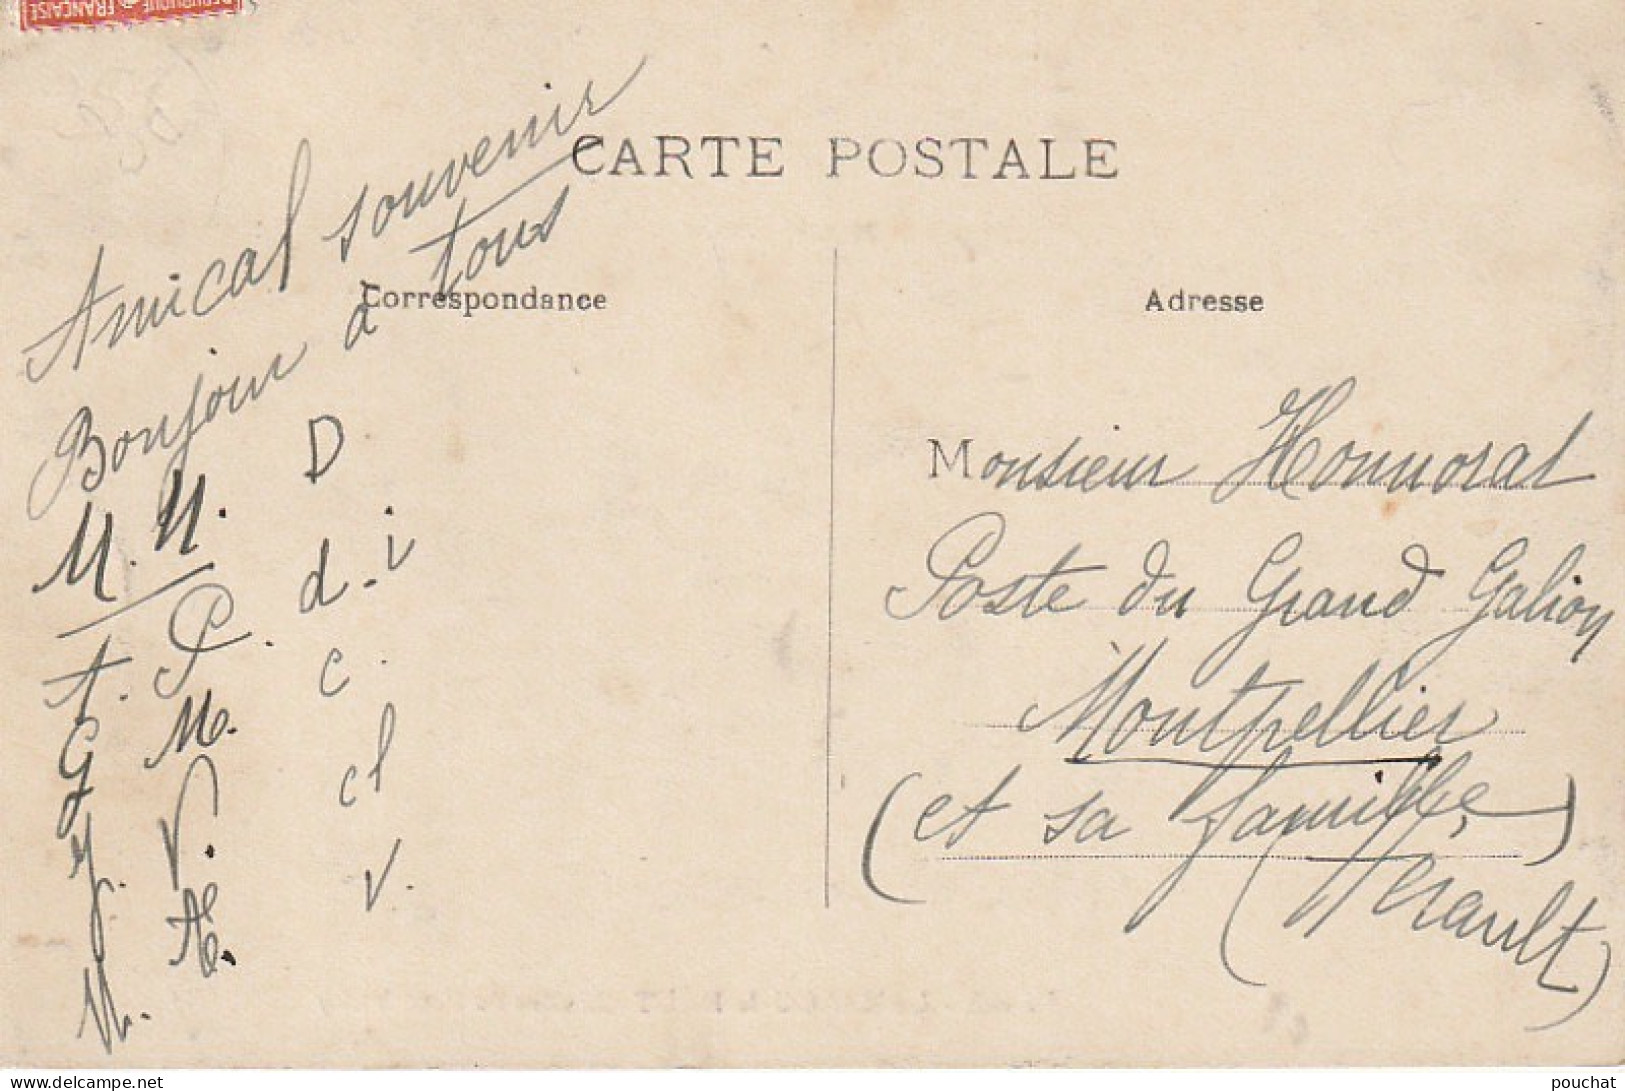 RÉPUBLIQUE FRANÇAISE
CARTE POSTALE
Correspondance
Amical souvenir
Bonjour à tous
Adresse
Monsieur Honnorat
Poste du Grand Galion
Montpellier
(et sa famille)
(Herault)
D
d. i
c.
cl
v.
delcampe.net
pouchat